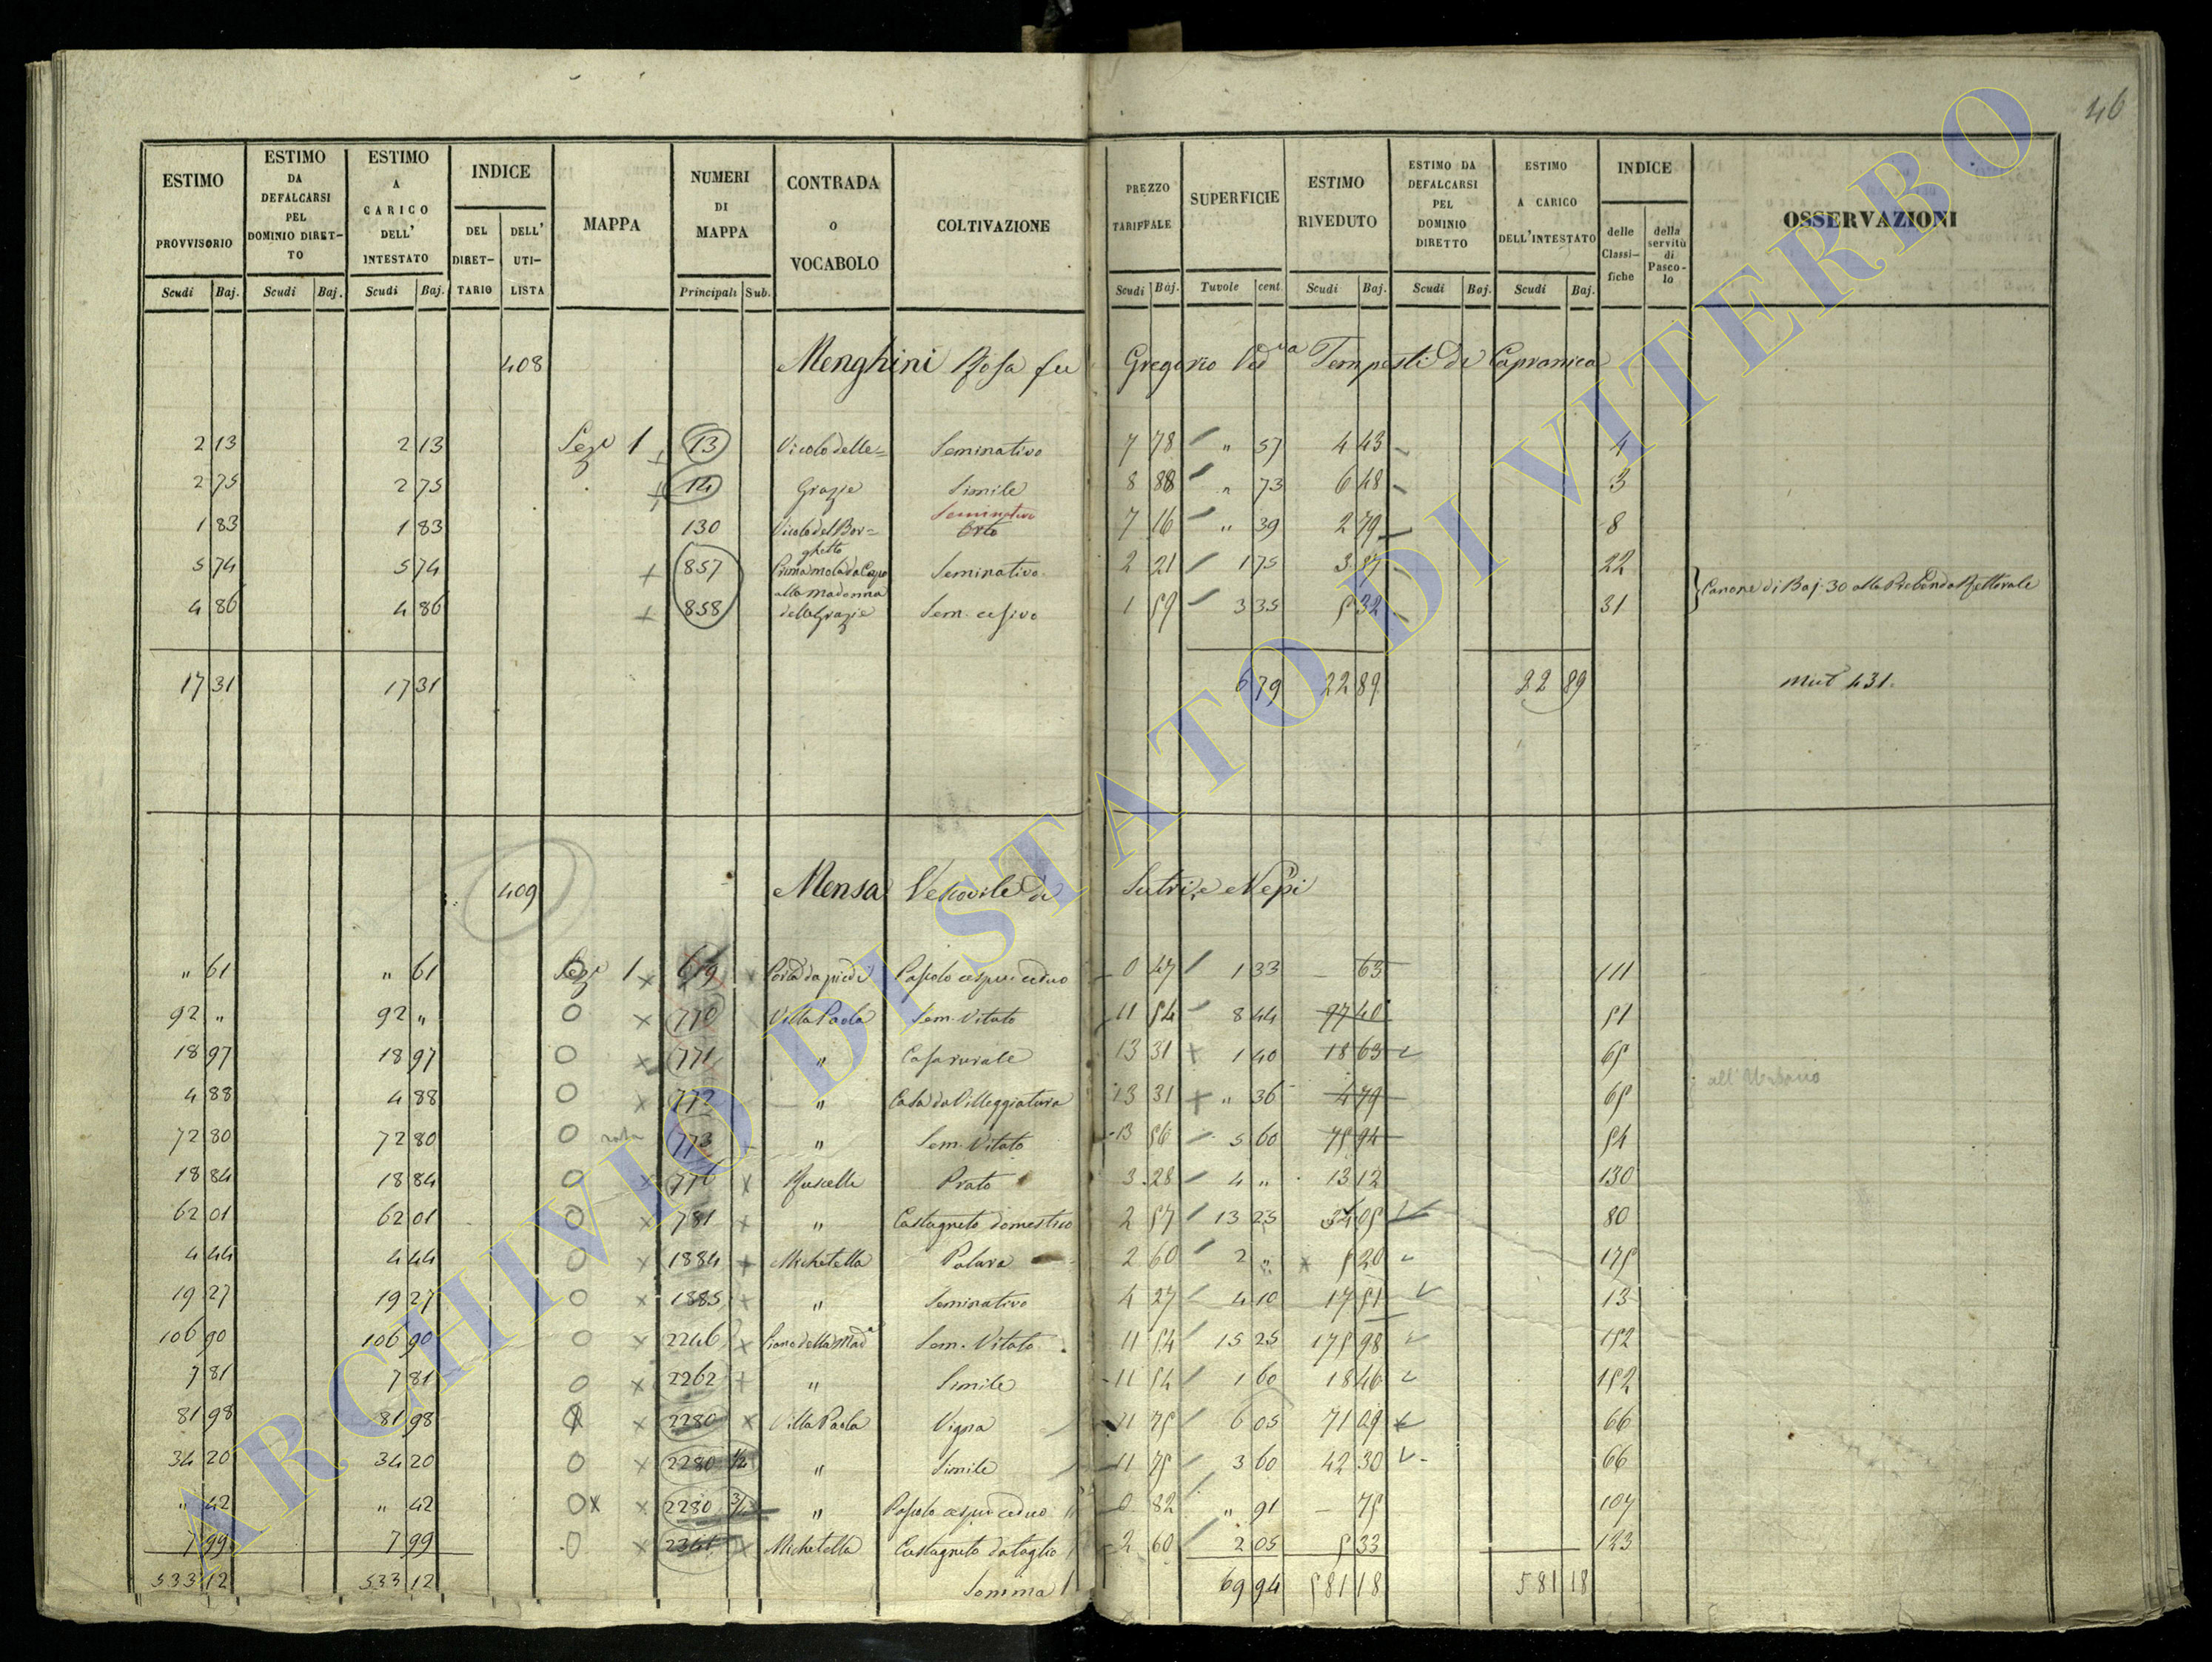 46
ESTIMO PROVVISORIO | ESTIMO DA DEFALCARSI PEL DOMINIO DIRET-TO | ESTIMO A CARICO DELL' INTESTATO | INDICE | MAPPA | NUMERI DI MAPPA | CONTRADA o VOCABOLO | COLTIVAZIONE | PREZZO TARIFFALE | SUPERFICIE | ESTIMO RIVEDUTO | ESTIMO DA DEFALCARSI PEL DOMINIO DIRETTO | ESTIMO A CARICO DELL'INTESTATO | INDICE | OSSERVAZIONI
DEL DIRET-TARIO | DELL' UTI-LISTA | delle Classi-fiche | della servitù di Pasco-lo
Scudi | Baj. | Scudi | Baj. | Scudi | Baj. | Principali | Sub. | Scudi | Baj. | Tavole | cent. | Scudi | Baj. | Scudi | Baj. | Scudi | Baj.
408 Menghini Rosa fu Gregorio Ved.va Tempesti di Capranica
2 13 | 2 13 | Sez.e 1 | 13 | Vicolo delle= | Seminativo | 7 78 | " 57 | 4 43 | 4
2 75 | 2 75 | 14 | Grazie | Simile | 8 88 | " 73 | 6 48 | 3
1 83 | 1 83 | 130 | Vicolo del Bor=ghetto | Seminativo Orto | 7 16 | " 39 | 2 79 | 8
5 74 | 5 74 | 857 | Prima mola da Capo | Seminativo | 2 21 | 1 75 | 3 87 | 22
alla Madonna | Canone di Baj. 30 alla Prebenda Rettorale
4 86 | 4 86 | 858 | delle Grazie | Sem. cesivo | 1 59 | 3 35 | 5 32 | 31
17 31 | 17 31 | 6 79 | 22 89 | 22 89 | Mut 431.
409 Mensa Vescovile di Sutri, e Nepi
" 61 | " 61 | Sez.e 1 | 619 | Porta da piedi | Pascolo cespu: ceduo | 0 47 | 1 33 | – 63 | 111
92 " | 92 " | 770 | Villa Paola | Sem. Vitato | 11 54 | 8 44 | 97 40 | 51
18 97 | 18 97 | 771 | " | Casa rurale | 13 31 | 1 40 | 18 63 | 65
4 88 | 4 88 | 772 | " | Casa da Villeggiatura | 13 31 | " 36 | 4 79 | 65 | all'Urbano
72 80 | 72 80 | 773 | " | Sem. Vitato | 13 56 | 5 60 | 75 94 | 54
18 84 | 18 84 | 776 | Ruscelle | Prato | 3 28 | 4 " | 13 12 | 130
62 01 | 62 01 | 781 | " | Castagneto domestico | 2 57 | 13 25 | 34 05 | 80
4 44 | 4 44 | 1884 | Michetella | | 2 60 | 2 " | 5 20 | 175
19 27 | 19 27 | 1885 | " | Seminativo | 4 27 | 4 10 | 17 51 | 13
106 90 | 106 90 | 2246 | Piano della Mad.a | Sem. Vitato | 11 54 | 15 25 | 175 98 | 152
7 81 | 7 81 | 2262 | " | Simile | 11 54 | 1 60 | 18 46 | 152
81 98 | 81 98 | 2280 | Villa Paola | Vigna | 11 75 | 6 05 | 71 09 | 66
34 20 | 34 20 | 2280 1/2 | " | Simile | 11 75 | 3 60 | 42 30 | 66
" 42 | " 42 | 2280 | " | Pascolo cespu: ceduo | 0 82 | " 91 | – 75 | 107
7 99 | 7 99 | Michetella | Castagneto da taglio | 2 60 | 2 05 | 5 33 | 123
533 12 | 533 12 | Somma | 69 94 | 581 18 | 581 18
ARCHIVIO DI STATO DI VITERBO